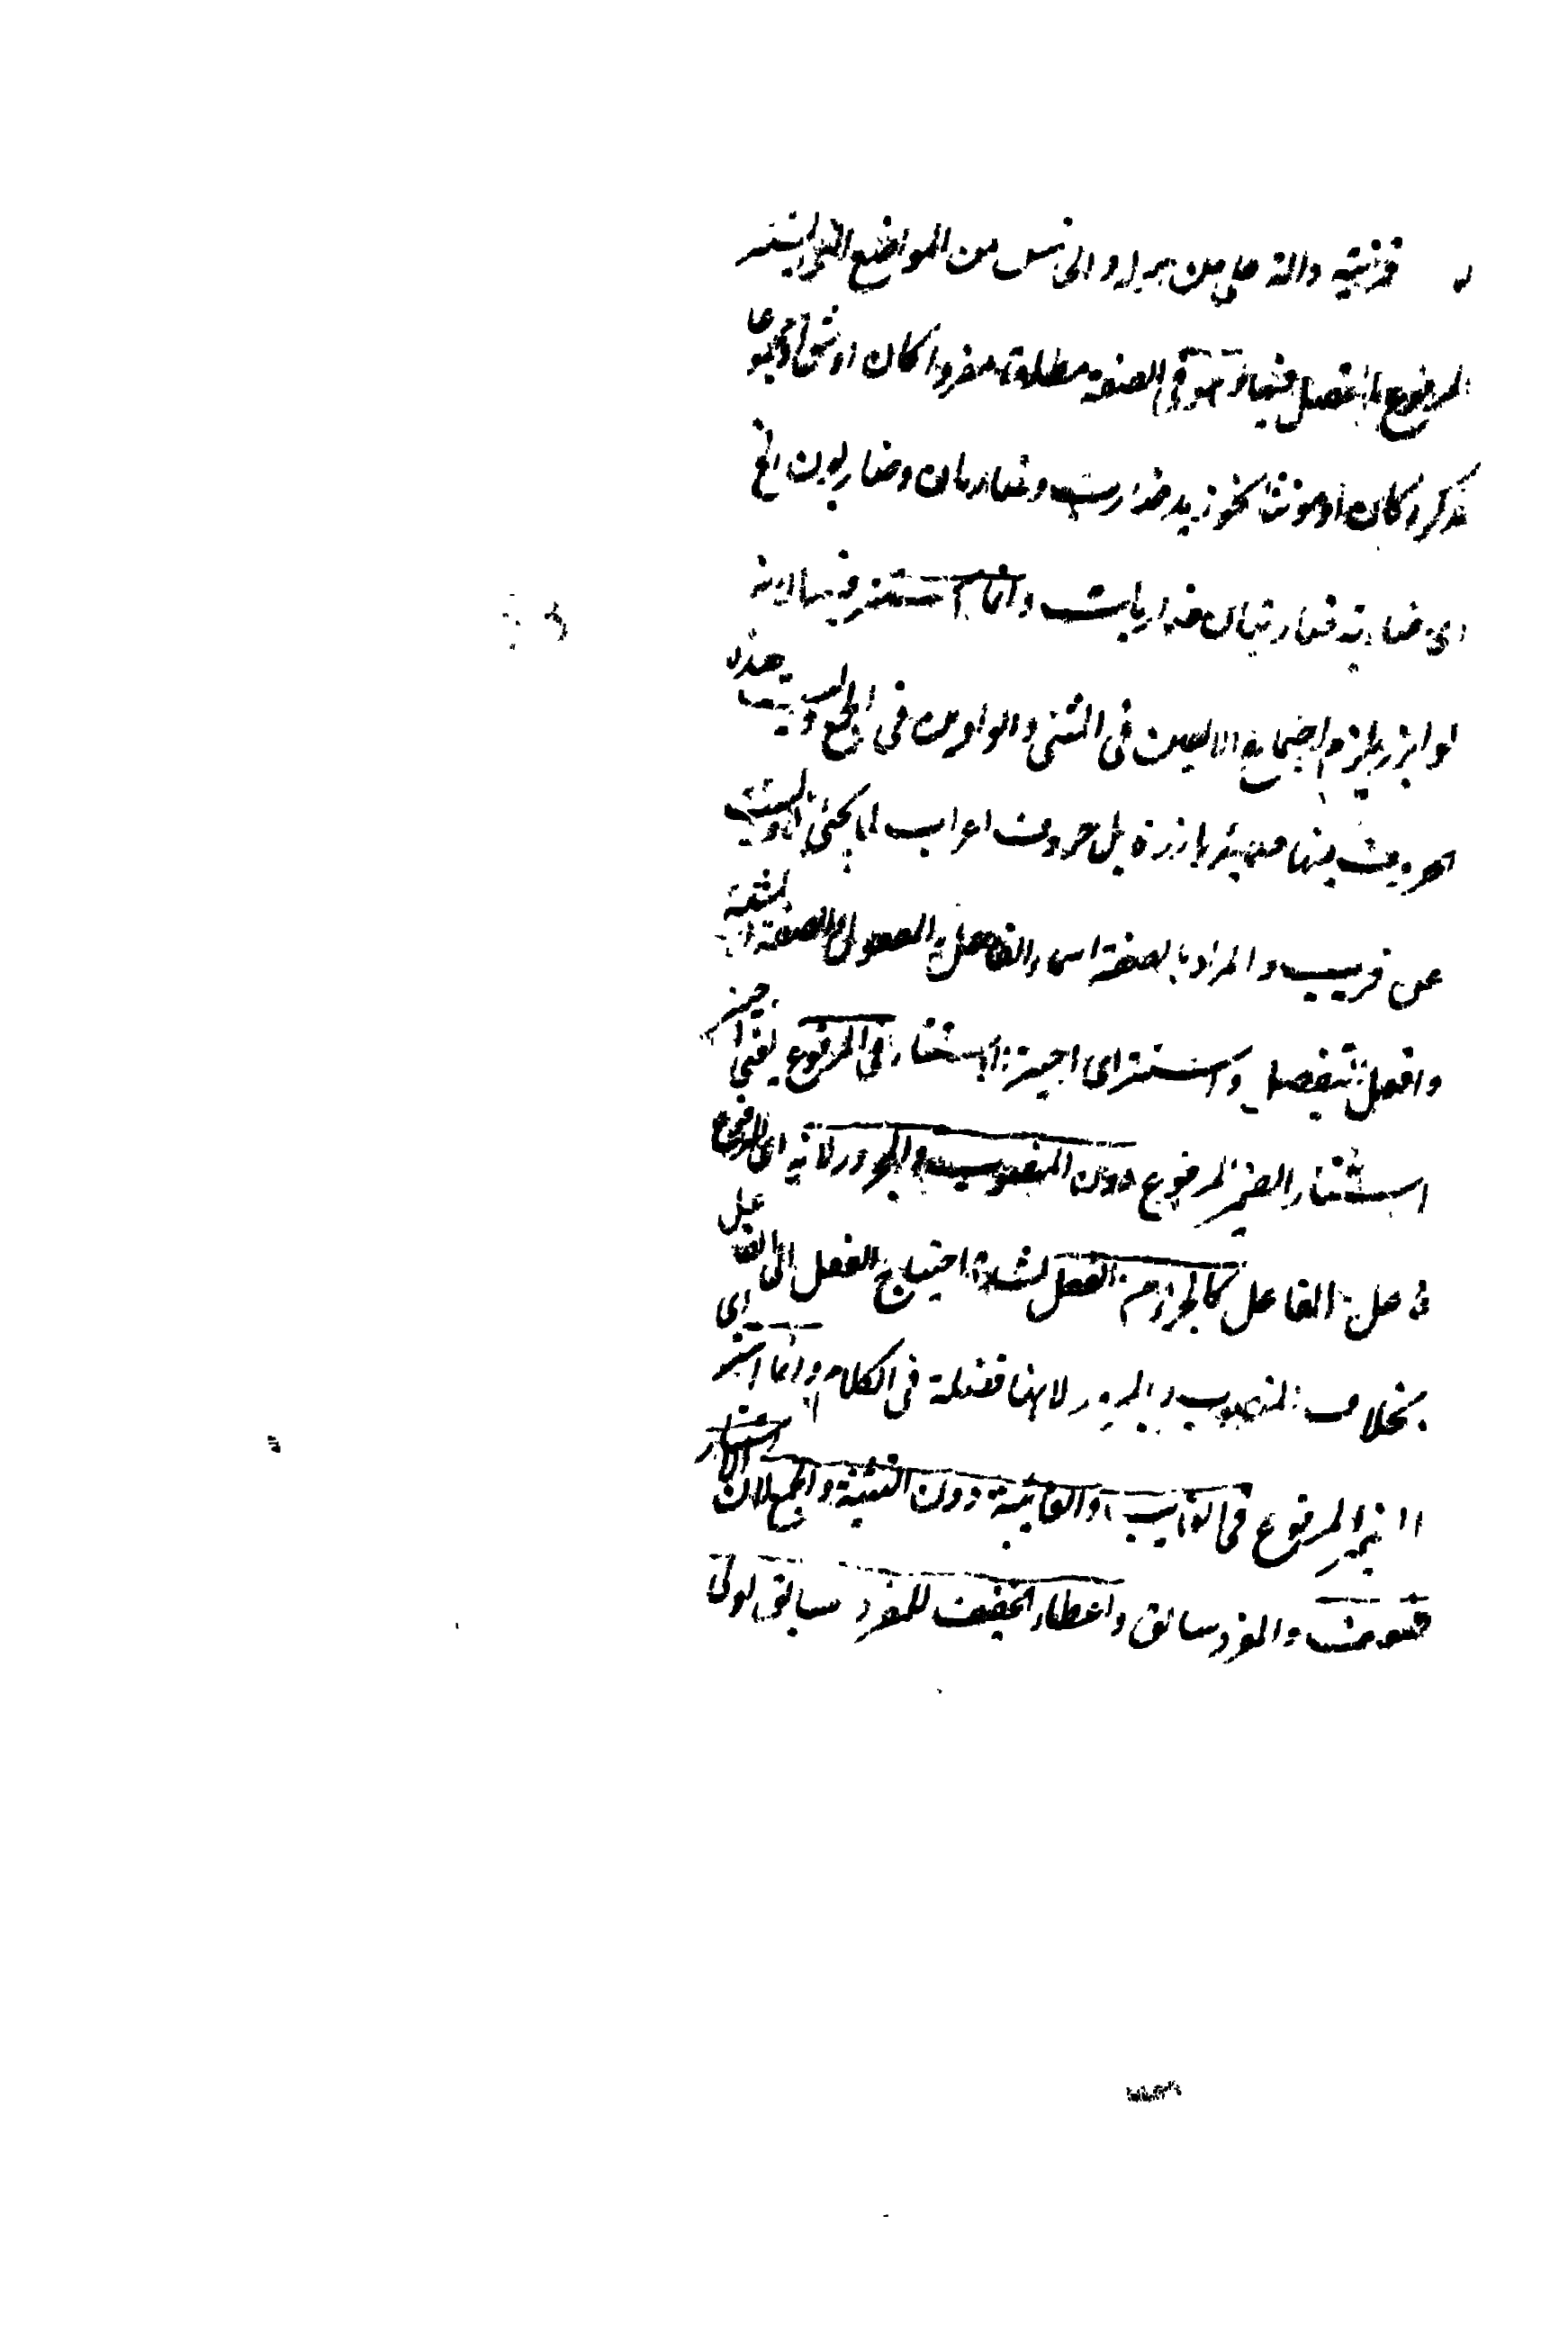 قرينة دالة على من يبرز والخامس من المواضع التي يستتر
المرفوع المتصل فيها هو في الصفة مطلقا مفردا كان او مثنى او مجموعا
مذكرا كان او مونثا نحو زيد ضارب وضاربان وضاربون الخ
اى ضاربة ضاربتان ضاربات وانما استتر فيها لانه
لو ابرز يلزم اجتماع الالفين في المثنى والواوين في الجمع وليست هذه
الحروف منها ضمير بارزة بل حروف اعراب لما يجئ
عن قريب والمراد بالصفة اسم الفاعل والمفعول والصفة المشبهة
وافعل التفضيل واستتر اى اجيز الاستتار في المرفوع يعنى اجيز
استتار الضمير المرفوع دون المنصوب والمجرور لانه اى المرفوع
فاعل الفاعل كالجزء من الفعل لشدة احتياج الفعل الى الفاعل
بخلاف المنصوب والمجرور لانهما فضلة في الكلام وانما استتر اى
الضمير المرفوع في الغايب والغايبة دون التثنية والجمع لان الاستتار
خفيف والمفرد سابق واعطاء الخفيف للمفرد سابق اولى